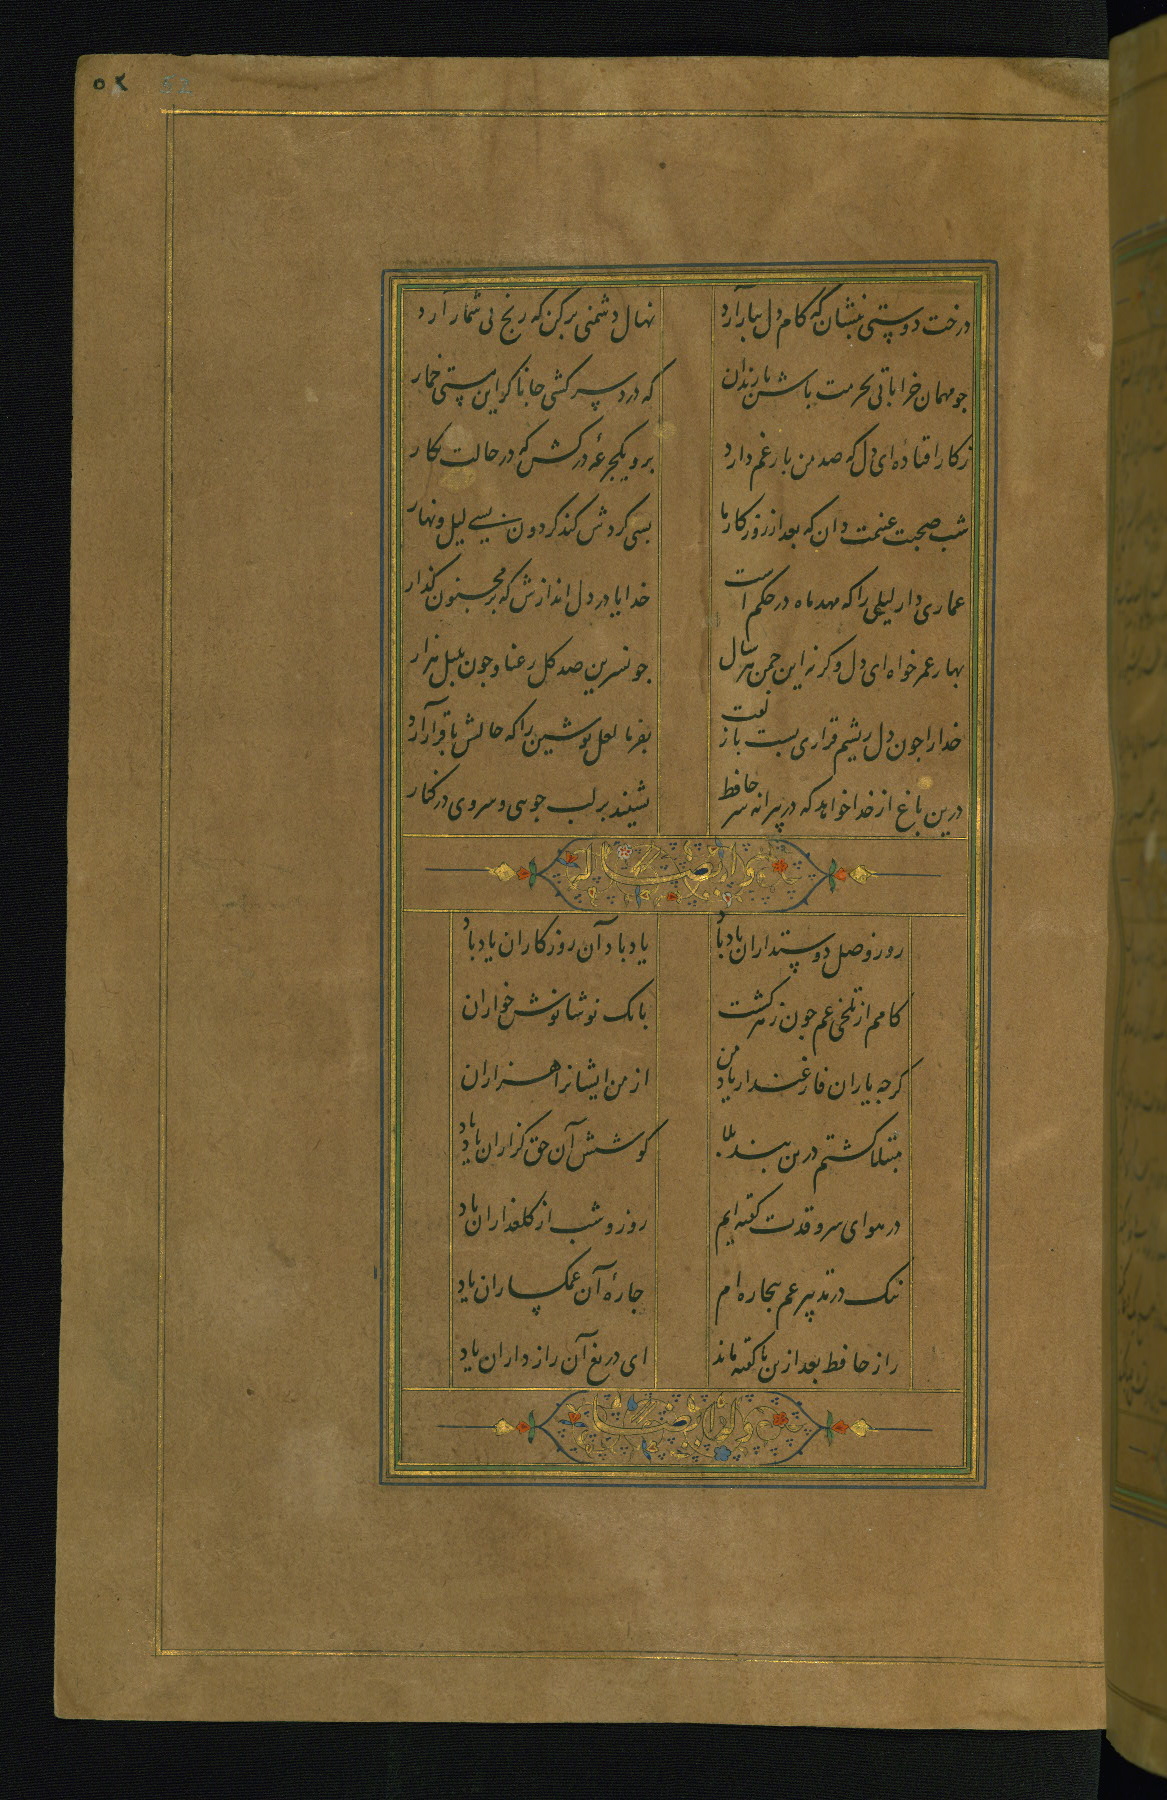 ۵۲
52
درخت دوستی بنشان که کام دل ببار آرد نهال دشمنی برکن که رنج بی شمار آرد
جو مهمان خراباتی بحرمت باش با رندان که درد سر کشی جانا کر این مستی خمار
ز کار افتاده ای دل که صد من بار غم دارد برو یکجرعهٔ درکش که در حالت بکار
شب صحبت غنیمت دان که بعد از روزکار ما بسی کردش کند کردون بسی لیل و نهار
عماری دار لیلی را که مهد ماه در حکم است خدایا در دل اندازش که بر مجنون کذار
بهار عمر خواه ای دل وکرنه این جمن هر سال جو نسرین صد کل رعنا و جون بلبل هزار
خدا را جون دل ریشم قراری بست با زلفت بفرما لعل نوشین را که حالش با قرار آرد
درین باغ از خدا خواهد که در پیرانه سر حافظ نشیند بر لب جوی و سروی در کنار
وله ایضا
روز وصل دوستداران یاد باد یاد باد آن روزکاران یاد باد
کامم از تلخی غم جون زهر کشت بانک نوشانوش خواران
کرجه یاران فارغند از یاد من از من ایشانرا هزاران
مبتلا کشتم درین بند بلا کوشش آن حق کزاران یاد باد
در هوای سرو قدت کفته ایم روز و شب از کلعذاران یاد
نیک در تدبیر غم بیجاره ام جارهٔ آن غمکساران یاد
راز حافظ بعد ازین ناکفته ماند ای دریغ آن رازداران یاد
وله ایضا